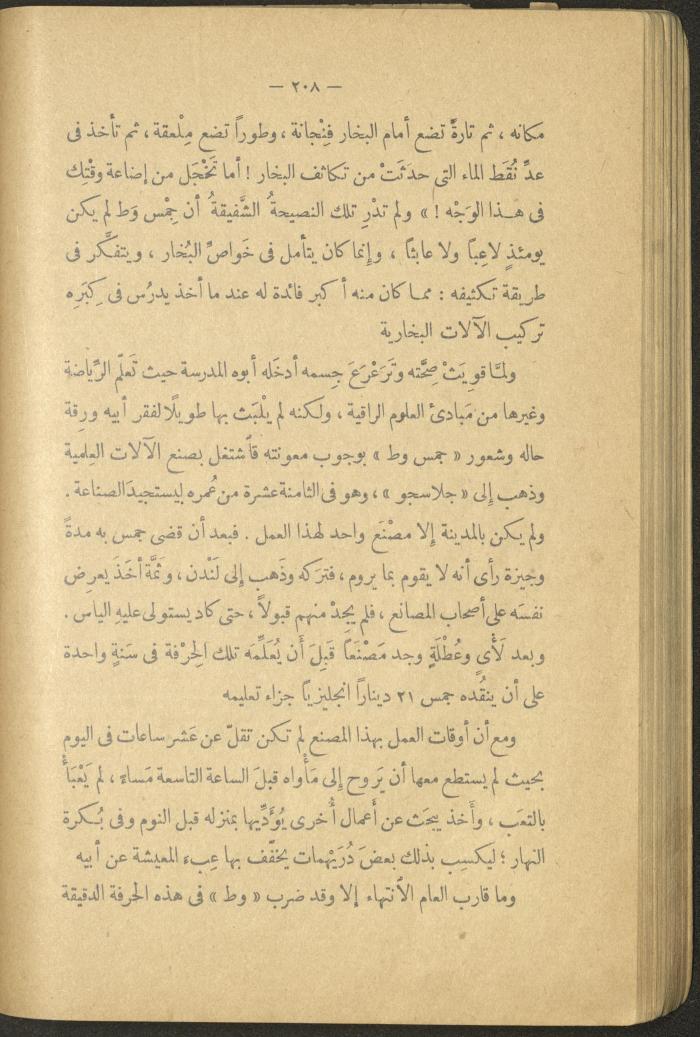 — ٢٠٨ —
مكانه ، ثم تارةً تضع أمام البخار فِنْجانة ، وطوراً تضع مِلْعقة ، ثم تأخذ فى
عدِّ نُقَط الماء التى حدثَتْ من تكاثف البخار ! أما تَخْجَل من إضاعة وقْتِك
فى هـذا الوَجْه ! » ولم تدْرِ تلك النصيحةُ الشَّفيقةُ أن جِمْس وَط لم يكن
يومئذٍ لاعِباً ولا عابثاً ، وإنما كان يتأمل فى خَواصِّ البُخار ، ويتفَكَّر فى
طريقة تكثيفه : ممـا كان منه أكبر فائدة له عند ما أخذ يدرُس فى كِبَرِه
تركيب الآلات البخارية
ولمَّا قوِيَتْ صحَّته وتَرَعْرَعَ جِسمه أدخَله أبوه المدرسة حيث تَعلّم الرِّياضة
وغيرها من مَبادئ العلوم الراقية ، ولكنه لم يلْبَث بها طويلًا لفقر أبيه ورِقة
حاله وشعور « جمس وط » بوجوب معونته فاَشتغل بصنع الآلات العِلمية
وذهب إلى « جلاسجو » ، وهو فى الثامنة عشرة من عُمره ليستجيدَ الصناعة .
ولم يكن بالمدينة إلا مصْنَع واحد لهذا العمل . فبعد أن قضى جمس به مدةً
وجيزة رأى أنه لا يقوم بما يروم ، فترَكه وذَهب إلى لَنْدن ، وثمَّة أخَذَ يعرِض
نفسَه على أصحاب المصانع ، فلم يجِدْ منهم قبولًا ، حتى كاد يستولى عليهِ الياس .
وبعد لَأْىٍ وعُطْلَةٍ وجد مَصْنَعاً قَبِلَ أن يُعَلِّمَه تلك الحِرْفة فى سَنةٍ واحدة
على أن ينقُده جمس ٢١ ديناراً انجليزيًّا جزاء تعليمه
ومع أن أوقات العمل بهذا المصنع لم تكن تقلّ عن عَشر ساعات فى اليوم
بحيث لم يستطع معها أن يَروح إلى مَأْواه قبلَ الساعة التاسعة مَساءً ، لم يَعْبَأْ
بالتعَب ، وأَخذ يبحَث عن أَعمال أُخرى يُؤَدِّيها بمنزله قبل النوم وفى بُكرة
النهار ؛ ليكسِب بذلك بعضَ دُرَيْهمات يخفّف بها عِبء المعيشة عن أبيه
وما قارب العام الاَنتهاء إلا وقد ضرب « وط » فى هذه الحرفة الدقيقة